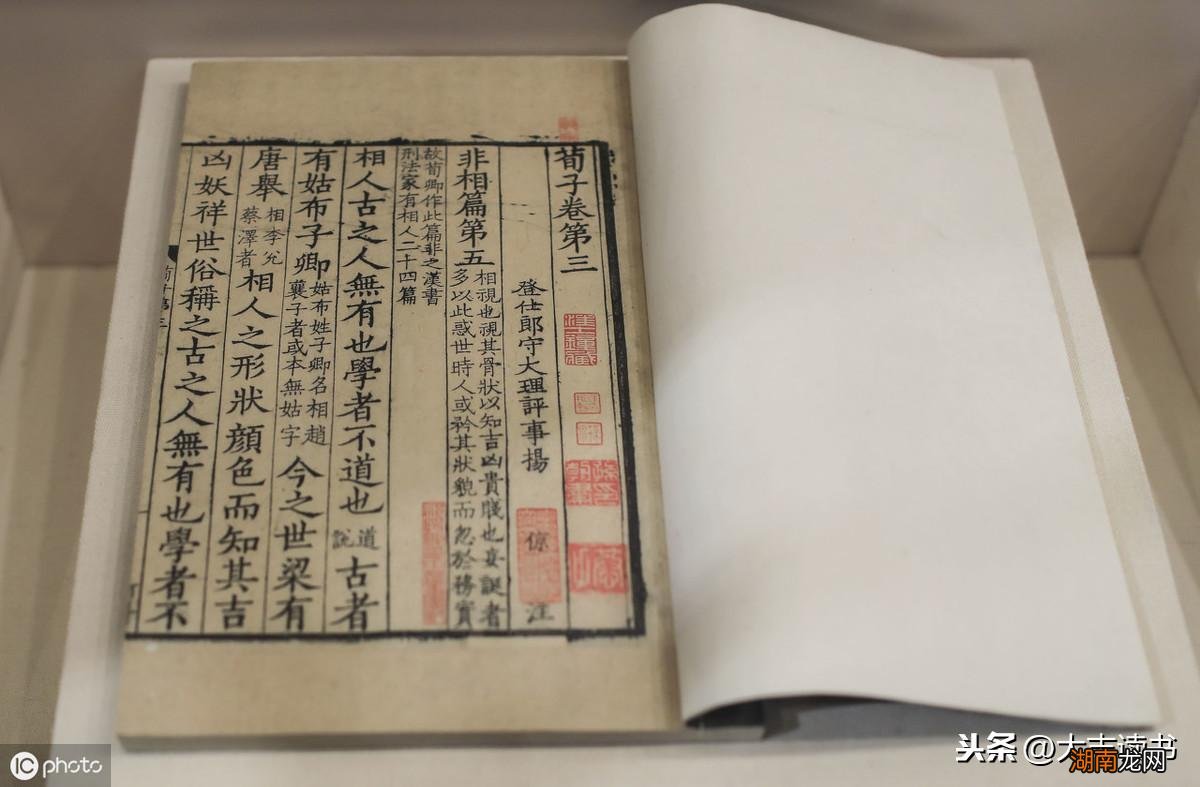 荀子卷第三
登仕郎守大理評事揚倞注
非相篇第五相視也視其骨狀以知吉凶貴賤也妄誕者
多以此惑世時人或矜其狀貌而忽於務實
故荀卿作此篇非之漢書
刑法家有相人二十四篇
相人古之人無有也學者不道也道說古者
有姑布子卿姑布姓子卿名相趙
襄子者或本無姑字今之世梁有
唐舉相李兊
蔡澤者相人之形狀顔色而知其吉
凶妖祥世俗稱之古之人無有也學者不
IC photo
头条 @大
读书
湖南龙网